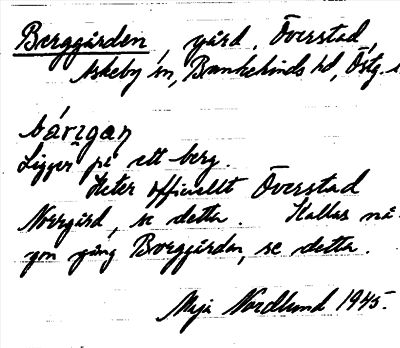 Berggården, gård, Överstad,
Askeby sn, Bankekinds hd, Östg.
bárigaɲ
Ligger på ett berg.
Heter officiellt Överstad
Norrgård, se detta. Kallas nå-
gon gång Borggården, se detta.
Maja Nordlund 1945.